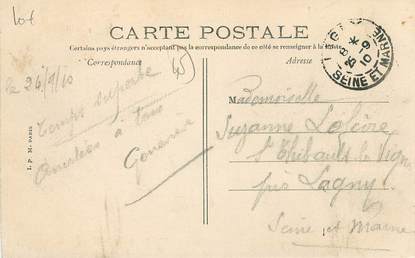 lot
CARTE POSTALE
Certains pays étrangers n'acceptant pas la correspondance de ce côté se renseigner à la
Correspondance
Adresse
45
le 26/9/10
Temps superbe
Amitiés à tous
L. P. M. PARIS
SEINE ET MARNE
Mademoiselle
Suzanne Lefèvre
St Thibault les Vignes
près Lagny
Seine et Marne